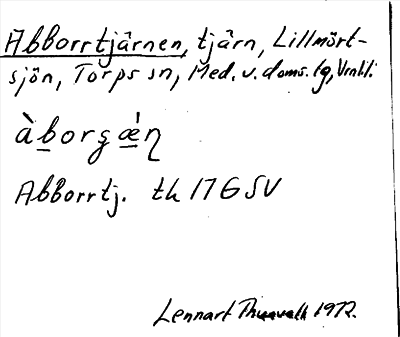 Abborrtjärnen, tjärn, Lillmört-
sjön, Torps sn, Med. v. doms. tg,
àborʂæ̀ɳ
Abborrtj. tk 17G SV
Lennart 1972.